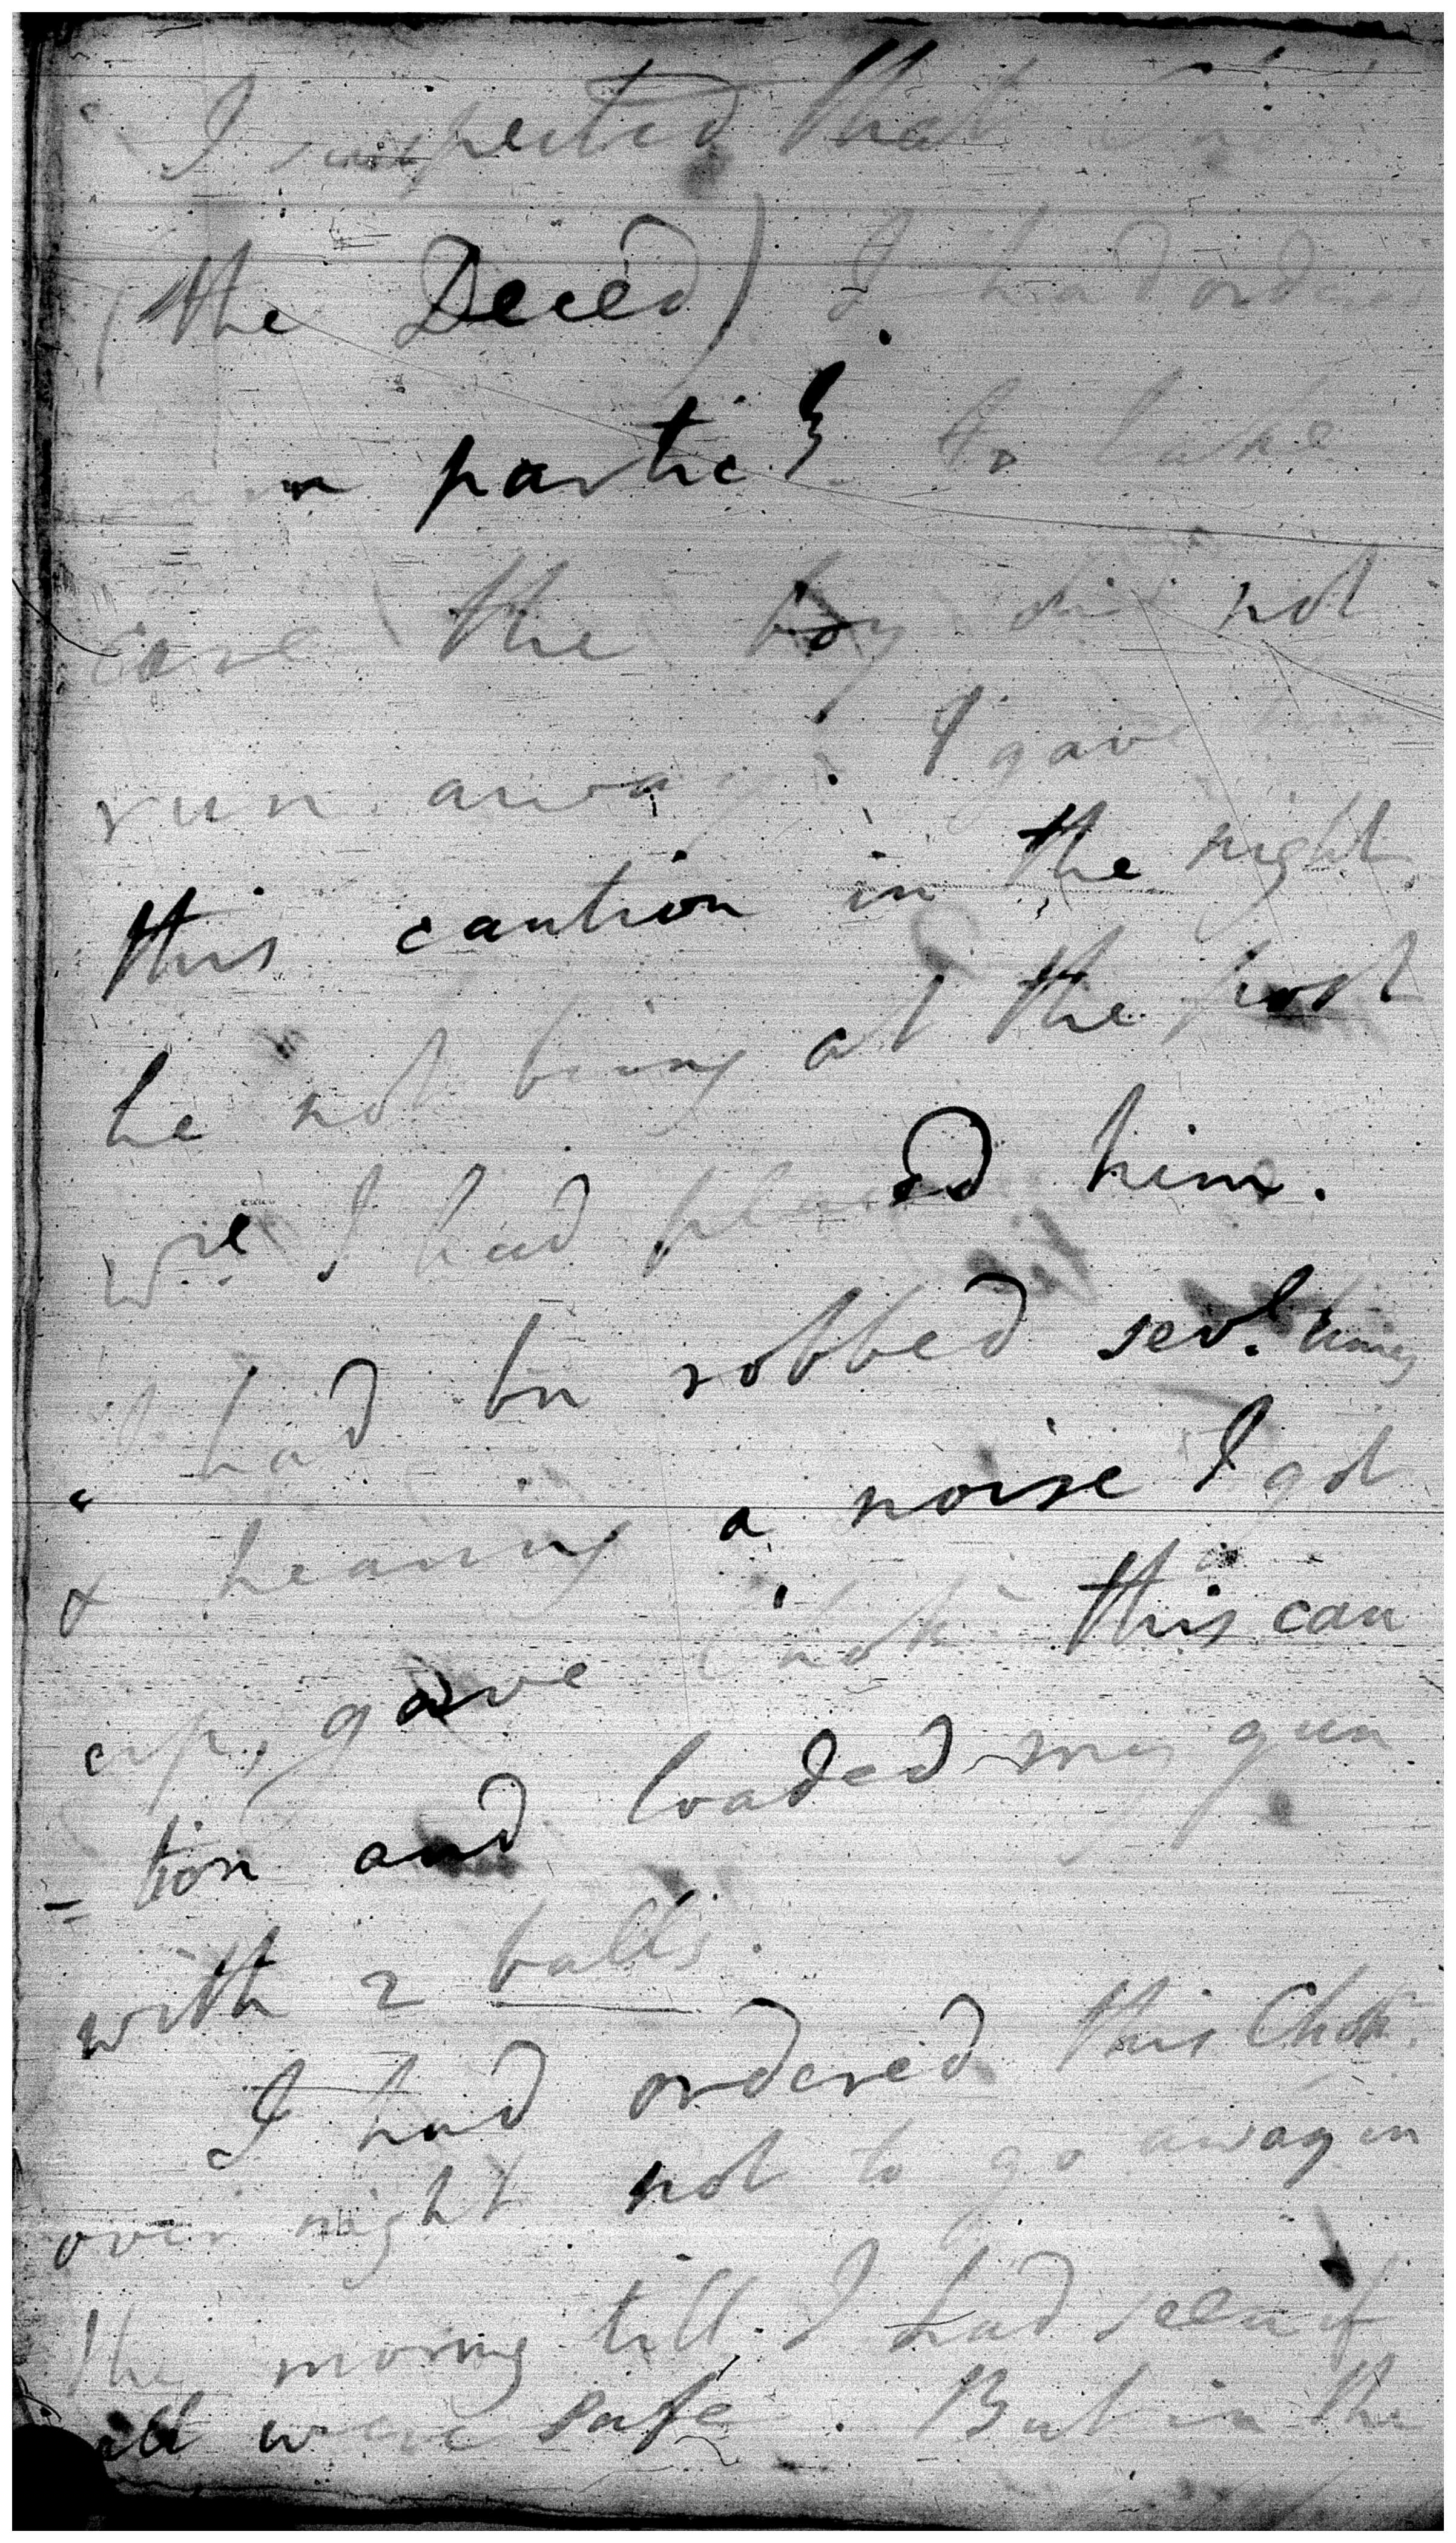 I suspected that
(the Deced) I had orders
in partic
to take
care the boy did not
run away. I gave him
this caution in the night
he not being at the post
wre I had placed him.
I had bn robbed sevl. times
& hearing a noise I got
up, gave Chok this cau
-tion and loaded my gun
with 2 balls.
I had ordered this Chok.
over night not to go away in
the morng till I had seen if
all were safe. But in the